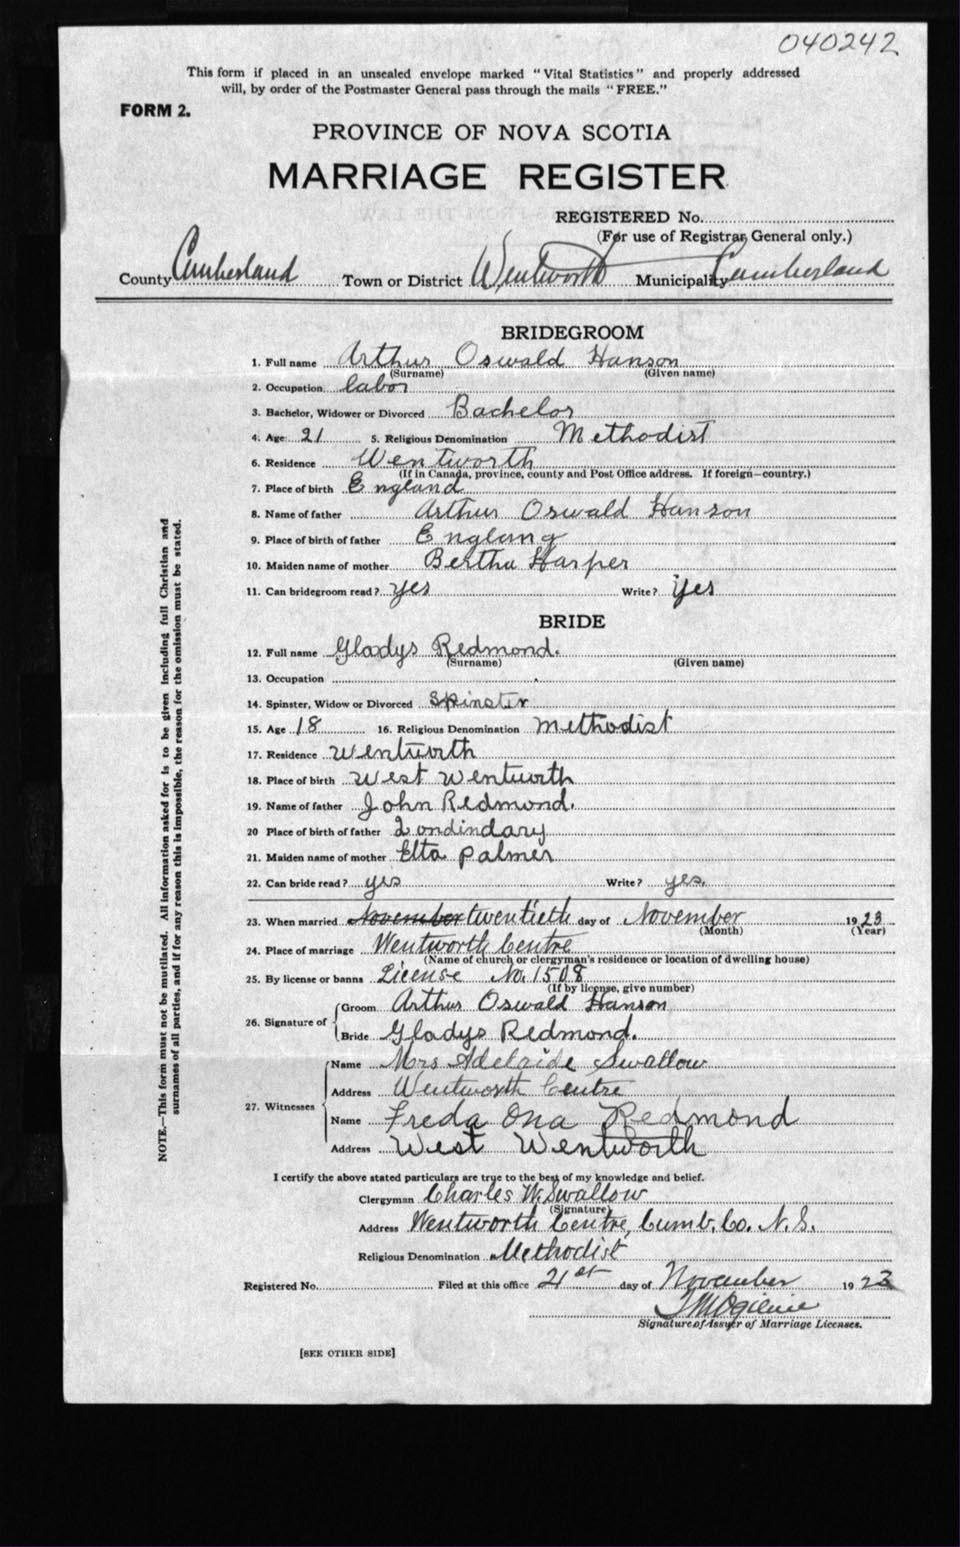 040242
This form if placed in an unsealed envelope marked "Vital Statistics" and properly addressed
will, by order of the Postmaster General pass through the mails "FREE."
FORM 2.
PROVINCE OF NOVA SCOTIA
MARRIAGE REGISTER
REGISTERED No.
(For use of Registrar General only.)
County Cumberland Town or District Wentworth Municipality Cumberland
BRIDEGROOM
1. Full name Arthur Oswald Hanson
(Surname) (Given name)
2. Occupation labor
3. Bachelor, Widower or Divorced Bachelor
4. Age 21 5. Religious Denomination Methodist
6. Residence Wentworth
(If in Canada, province, county and Post Office address. If foreign—country.)
7. Place of birth England
8. Name of father Arthur Oswald Hanson
9. Place of birth of father Englang
10. Maiden name of mother Bertha Harper
11. Can bridegroom read? yes Write? yes
BRIDE
12. Full name Gladys Redmond.
(Surname) (Given name)
13. Occupation
14. Spinster, Widow or Divorced Spinster
15. Age 18 16. Religious Denomination Methodist
17. Residence Wentworth
18. Place of birth West Wentworth
19. Name of father John Redmond.
20 Place of birth of father Londindary
21. Maiden name of mother Elta Palmer
22. Can bride read? yes Write? yes.
23. When married November twentieth day of November 1923
(Month) (Year)
24. Place of marriage Wentworth Centre
(Name of church or clergyman's residence or location of dwelling house)
25. By license or banns License No. 1508
(If by license, give number)
26. Signature of Groom Arthur Oswald Hanson
Bride Gladys Redmond.
27. Witnesses Name Mrs Adelaide Swallow
Address Wentworth Centre
Name Freda Ona Redmond
Address West Wentworth
I certify the above stated particulars are true to the best of my knowledge and belief.
Clergyman Charles W. Swallow
(Signature)
Address Wentworth Centre, Cumb. Co. N.S.
Religious Denomination Methodist
Registered No. Filed at this office 21st day of November 1923
Signature of Issuer of Marriage Licenses.
[SEE OTHER SIDE]
NOTE.—This form must not be mutilated. All information asked for is to be given including full Christian and
surnames of all parties, and if for any reason this is impossible, the reason for the omission must be stated.